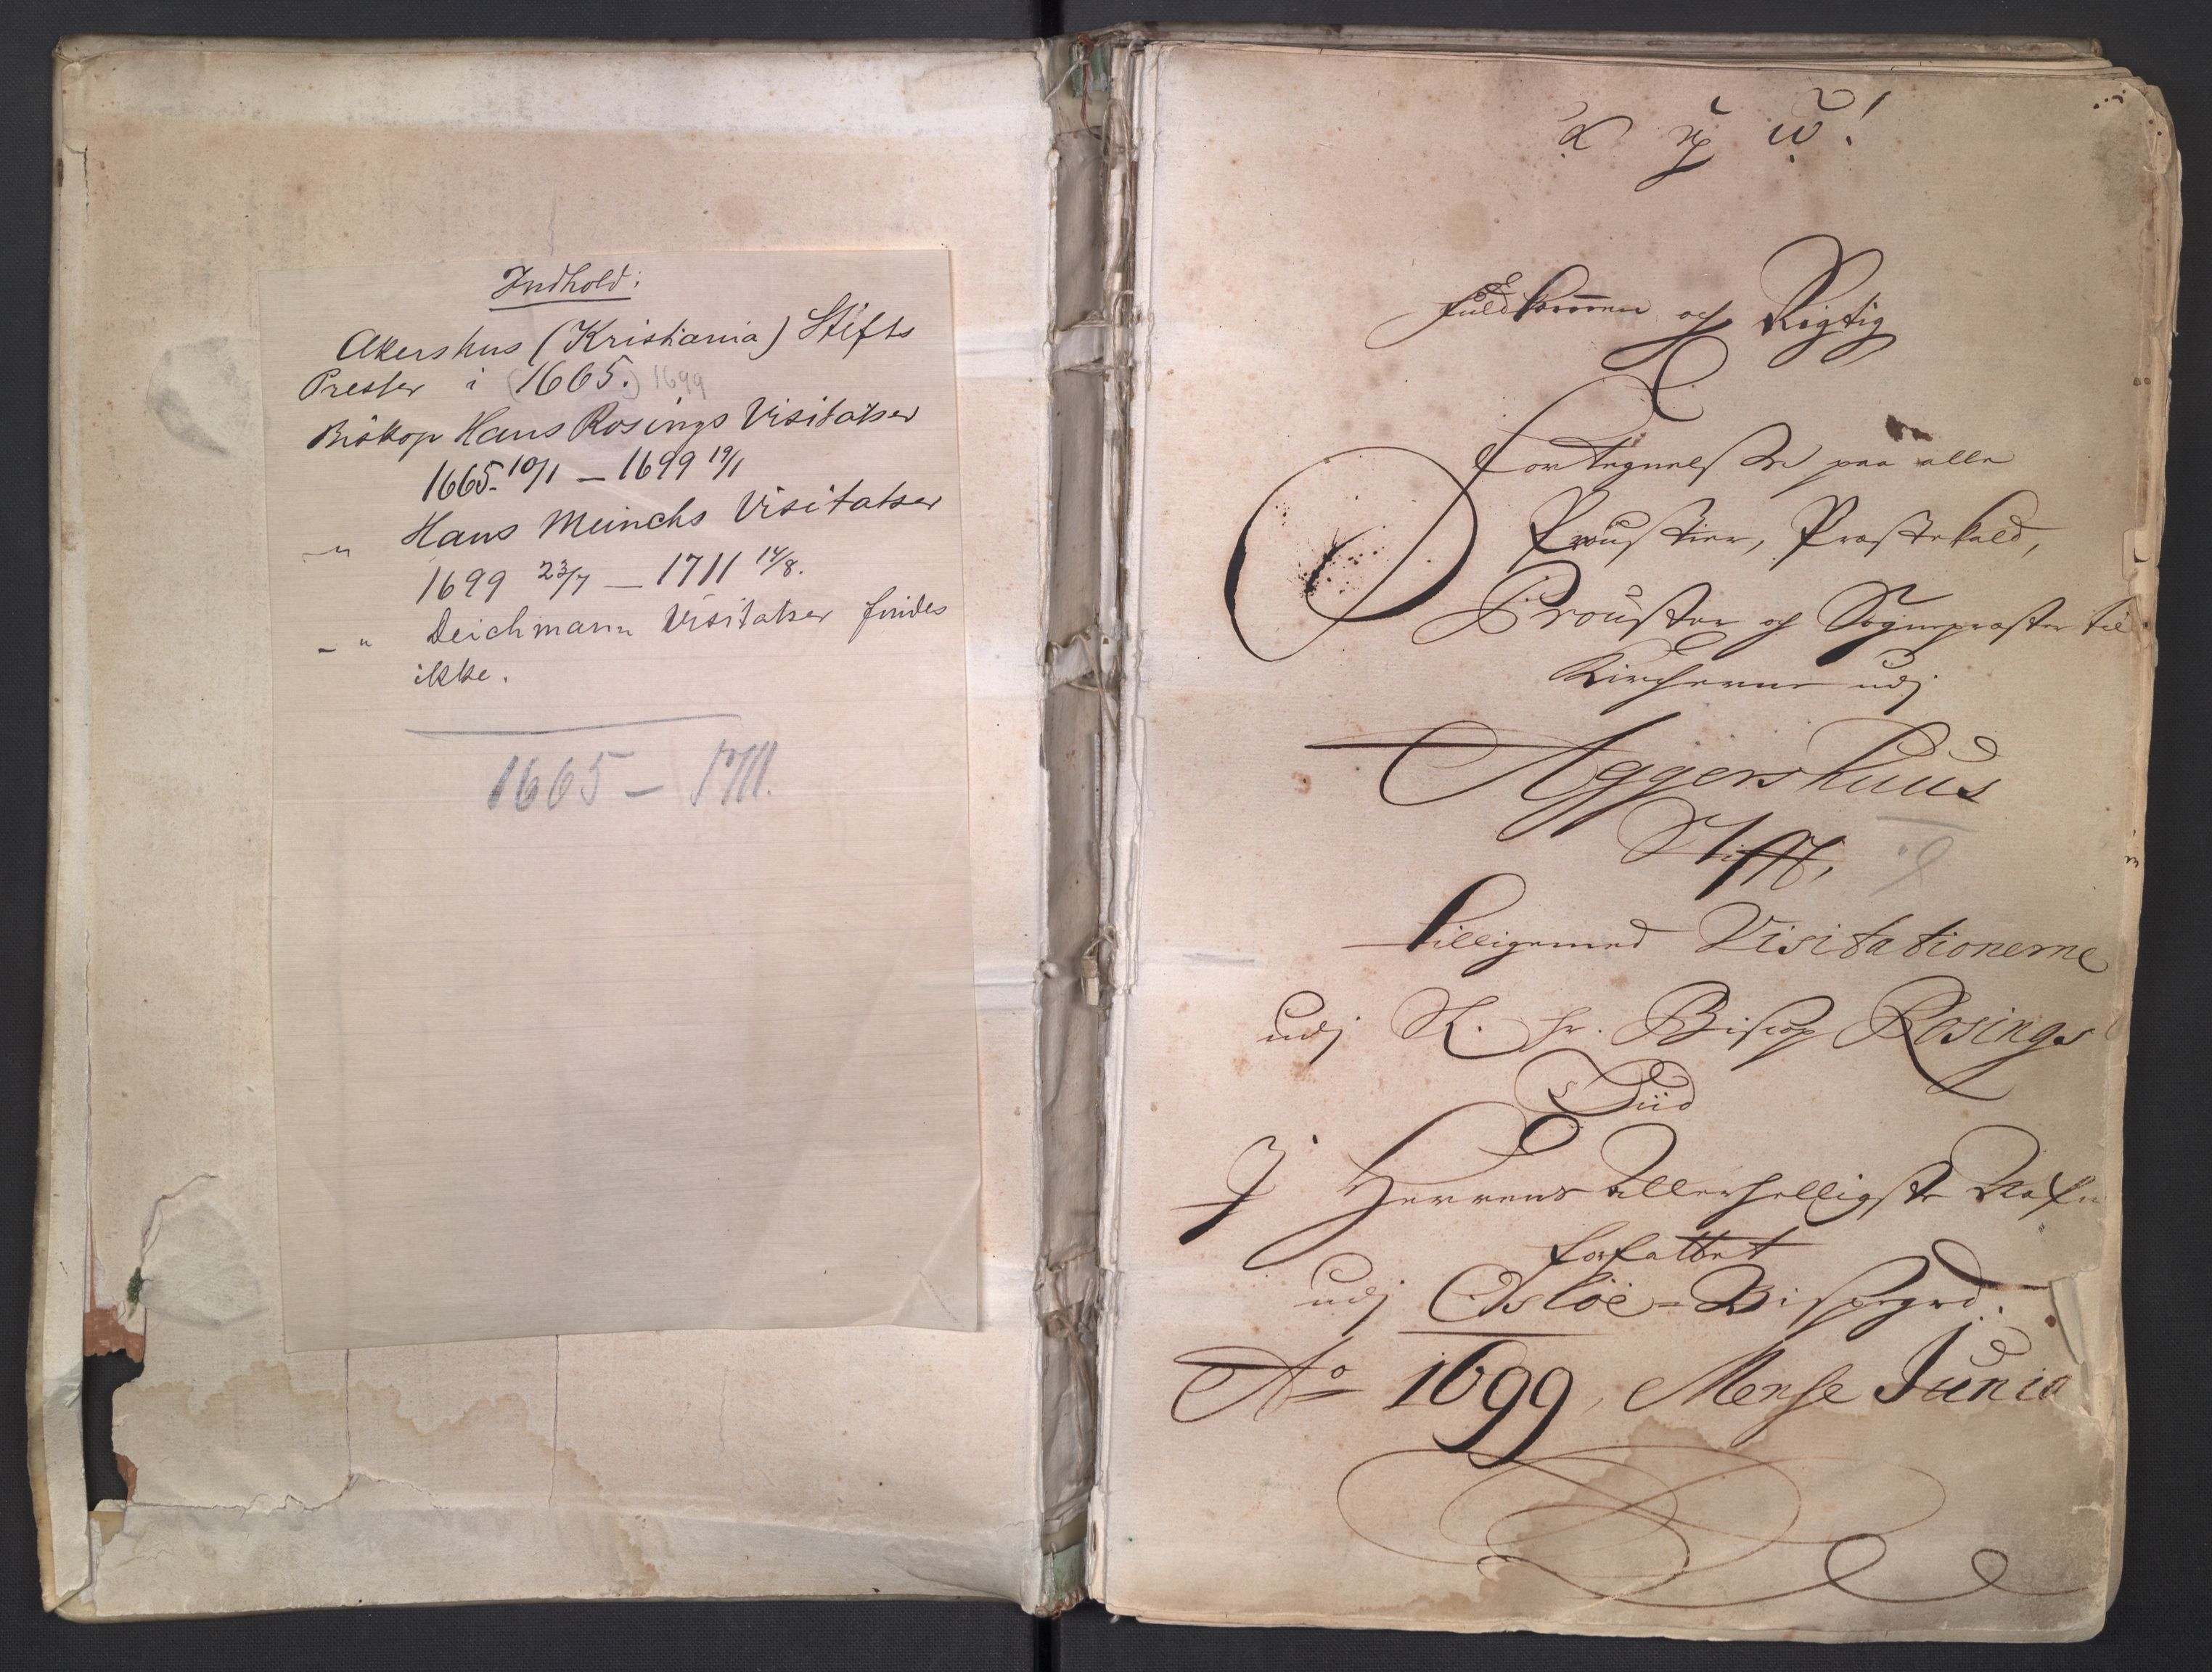 Indhold:
Akershus (Kristiania) Stifts
Prester i (1665.) 1699
Biskop Hans Rosings Visitatser
1665 10/1 — 1699 19/1
„ Hans Munchs Visitatser
1699 23/7 — 1711 14/8.
„ Deichmann Visitatser findes
ikke.
1665 – 1711.
Fuldkommen och Rigtig
Fortegnelse paa alle
Proustier, Præstekald,
Prouster och Sognepræster til
Kircherne udj
Aggershuus
Stifft,
tilligemed Visitationerne
udj S. Hr. Biscop Rosings
Tiid
J Herrens Allerhelligste Nafn
forfattet
udj Osloe-Bispegrd.
Ao 1699, Mense Junio